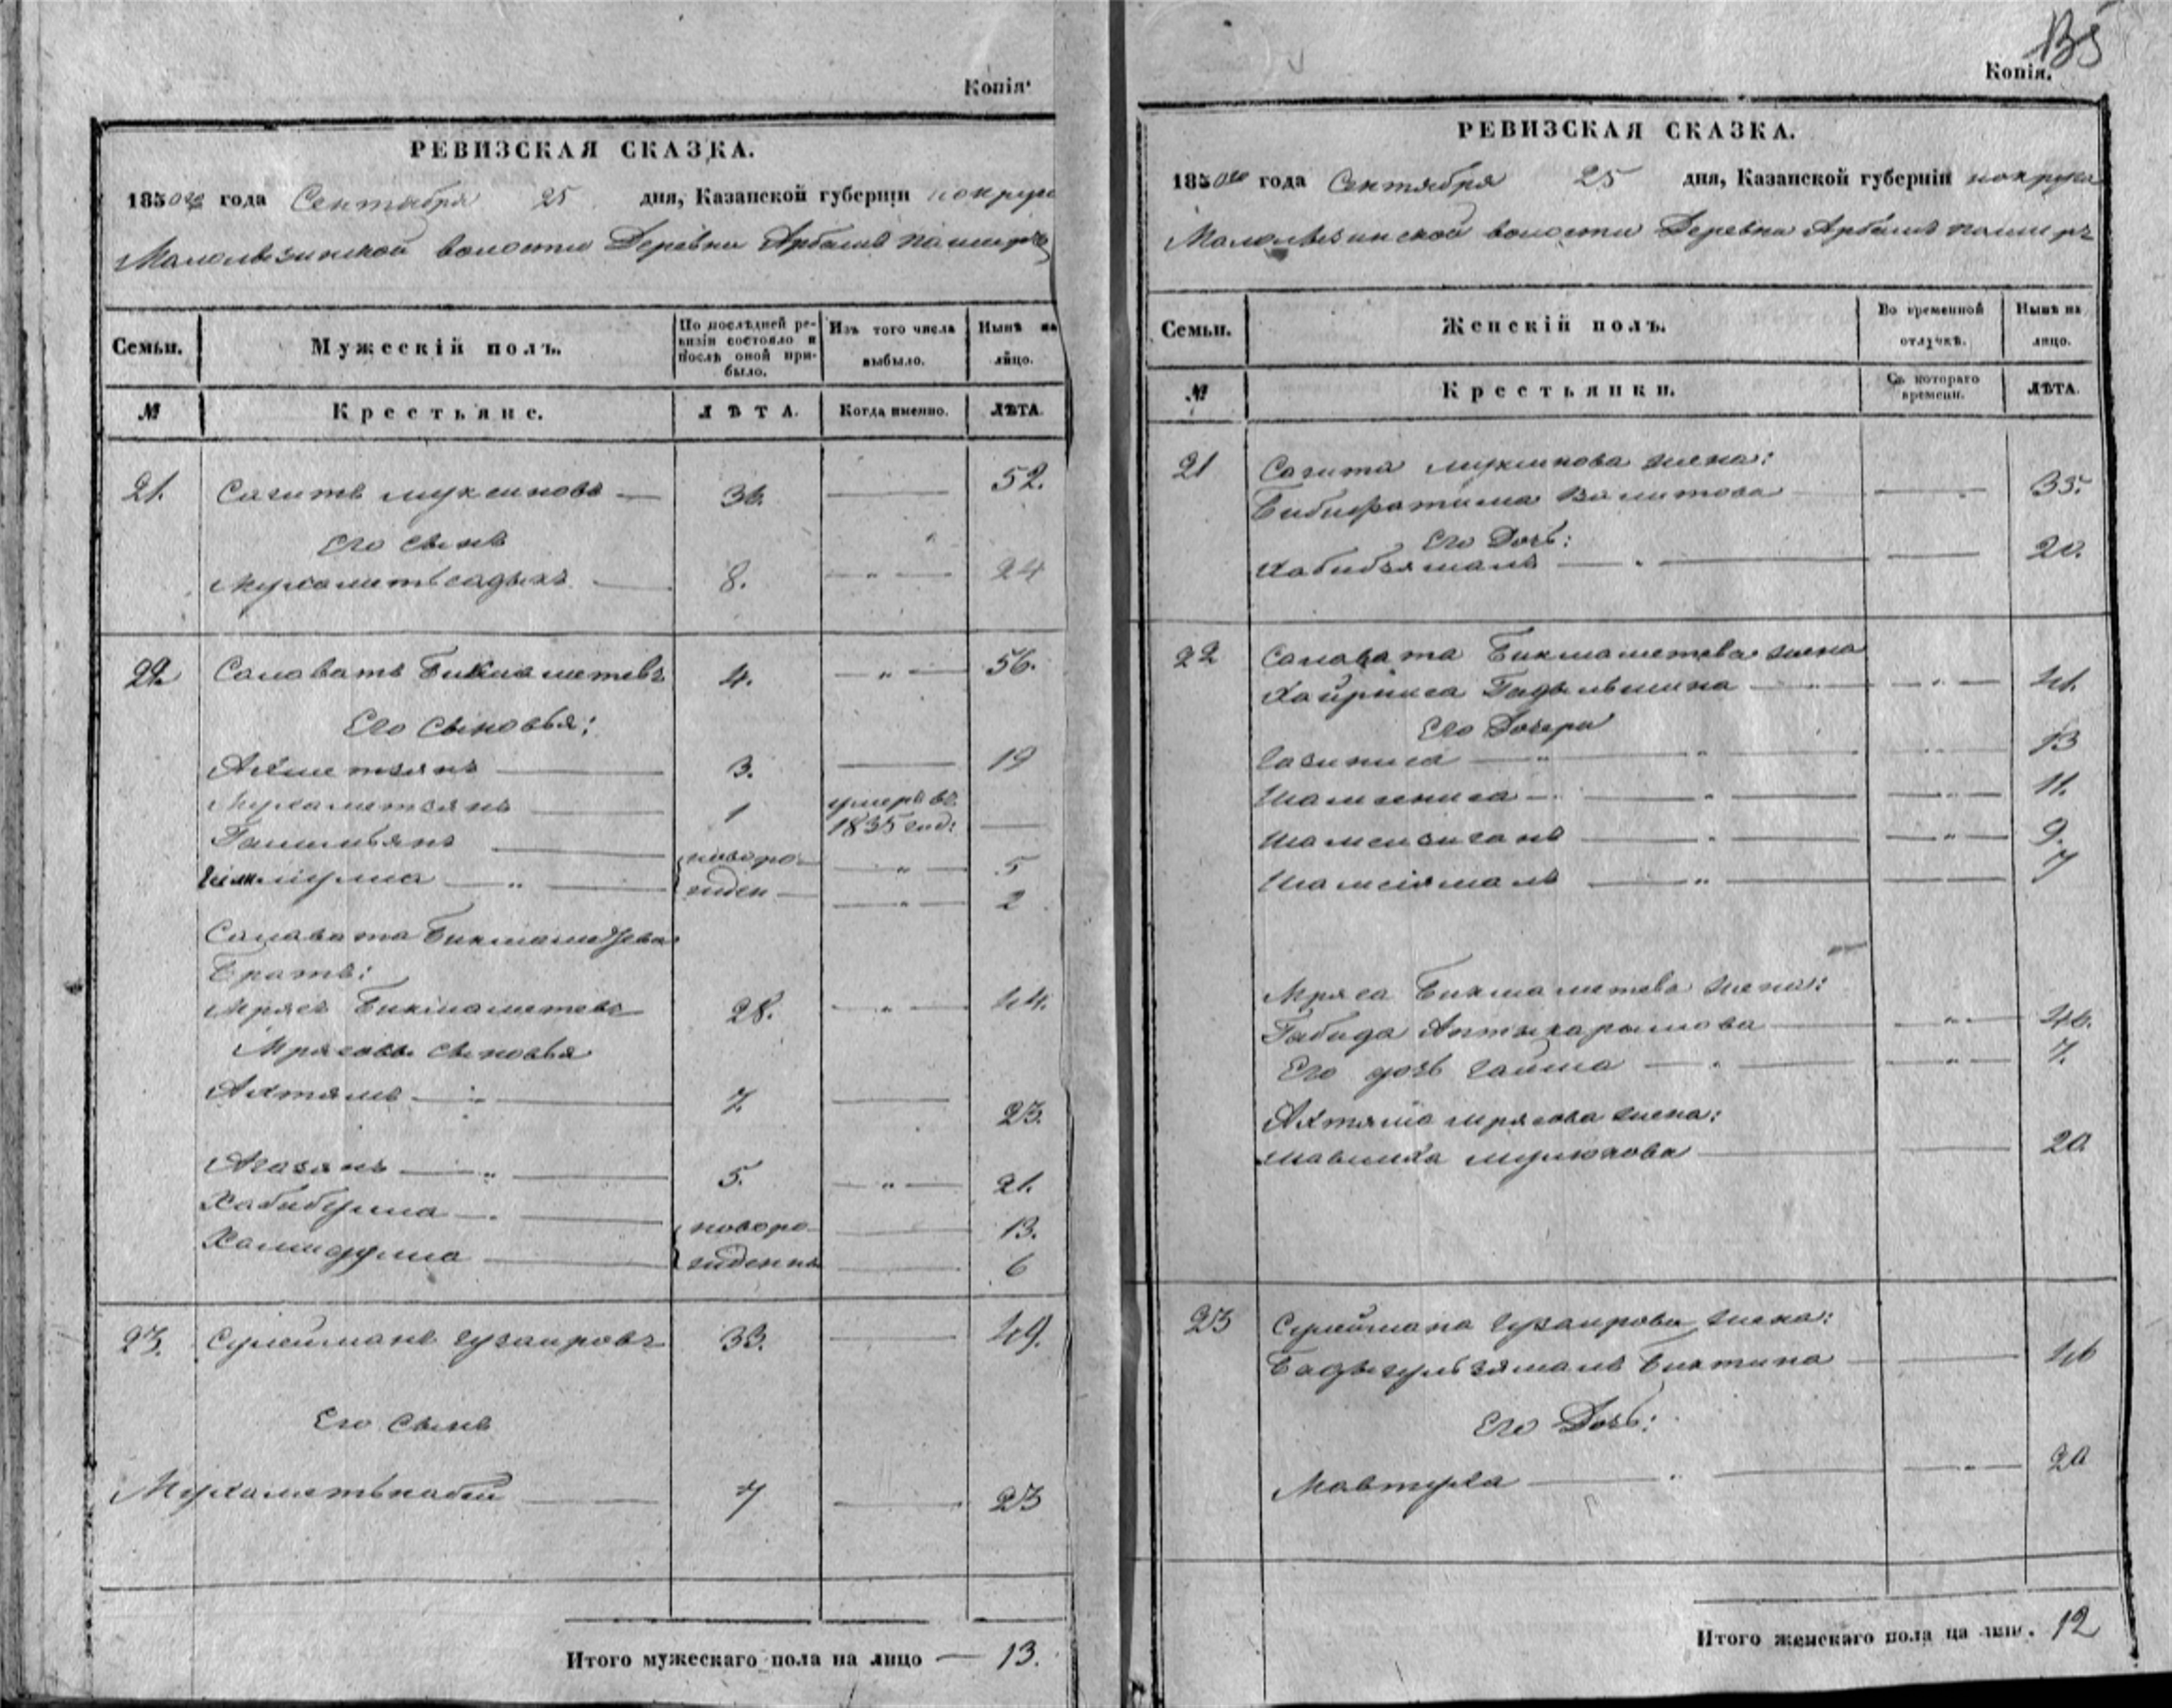 Копія.
РЕВИЗСКАЯ СКАЗКА.
1850го года Сентября 25 дня, Казанской губерніи
волости Деревни Арбашъ
Семьи.
Мужескій полъ.
По послѣдней ре-
визіи состояло и
послѣ оной при-
было.
Изъ того числа
выбыло.
Нынѣ на
лицо.
№
Крестьяне.
ЛѢТА.
Когда именно.
ЛѢТА.
21. Сагитъ Муксиновъ 36. 52.
Его сынъ
Мухаметьсадыкъ 8. 24
22 Салаватъ Бикмаметевъ 56.
Его сыновья:
Ахметзянъ 3. 19
Мухаметзянъ 1 умеръ въ
1835 год:
новоро- 5
жден 2
Салавата Бикмаметева
братъ:
Мрясъ Бикмаметевъ 28. 44.
Мрясовы сыновья
Ахтямъ 7. 23.
Агазянъ 5. 21.
Хабибулла новоро- 13.
Хамидулла жденны 6
23. Сулейманъ Гузаировъ 33. 49.
Его сынъ
Мухаметьнабій 7 23
Итого мужескаго пола на лицо 13.
135
Копія.
РЕВИЗСКАЯ СКАЗКА.
1850го года Сентября 25 дня, Казанской губерніи
волости Деревни Арбашъ
Семьи.
Женскій полъ.
Во временной
отлучкѣ.
Нынѣ на
лицо.
№
Крестьянки.
Съ котораго
времени.
ЛѢТА.
21 Сагита Муксинова жена:
Бибифатима Валитова 35.
Его Дочь:
Хабибзямалъ 20.
22 Салавата Бикмаметева жена
41.
Его Дочери
13
Шамсениса 11.
9.
Шамсіямалъ 7
Мряса Бикмаметева жена:
Габида 46.
Его дочь 7.
Ахтяма Мрясова жена:
20
23 Сулеймана Гузаирова жена:
Бадыгульзямалъ Биктина 46
Его Дочь:
Мавтуха 20
Итого женскаго пола на лицо. 12